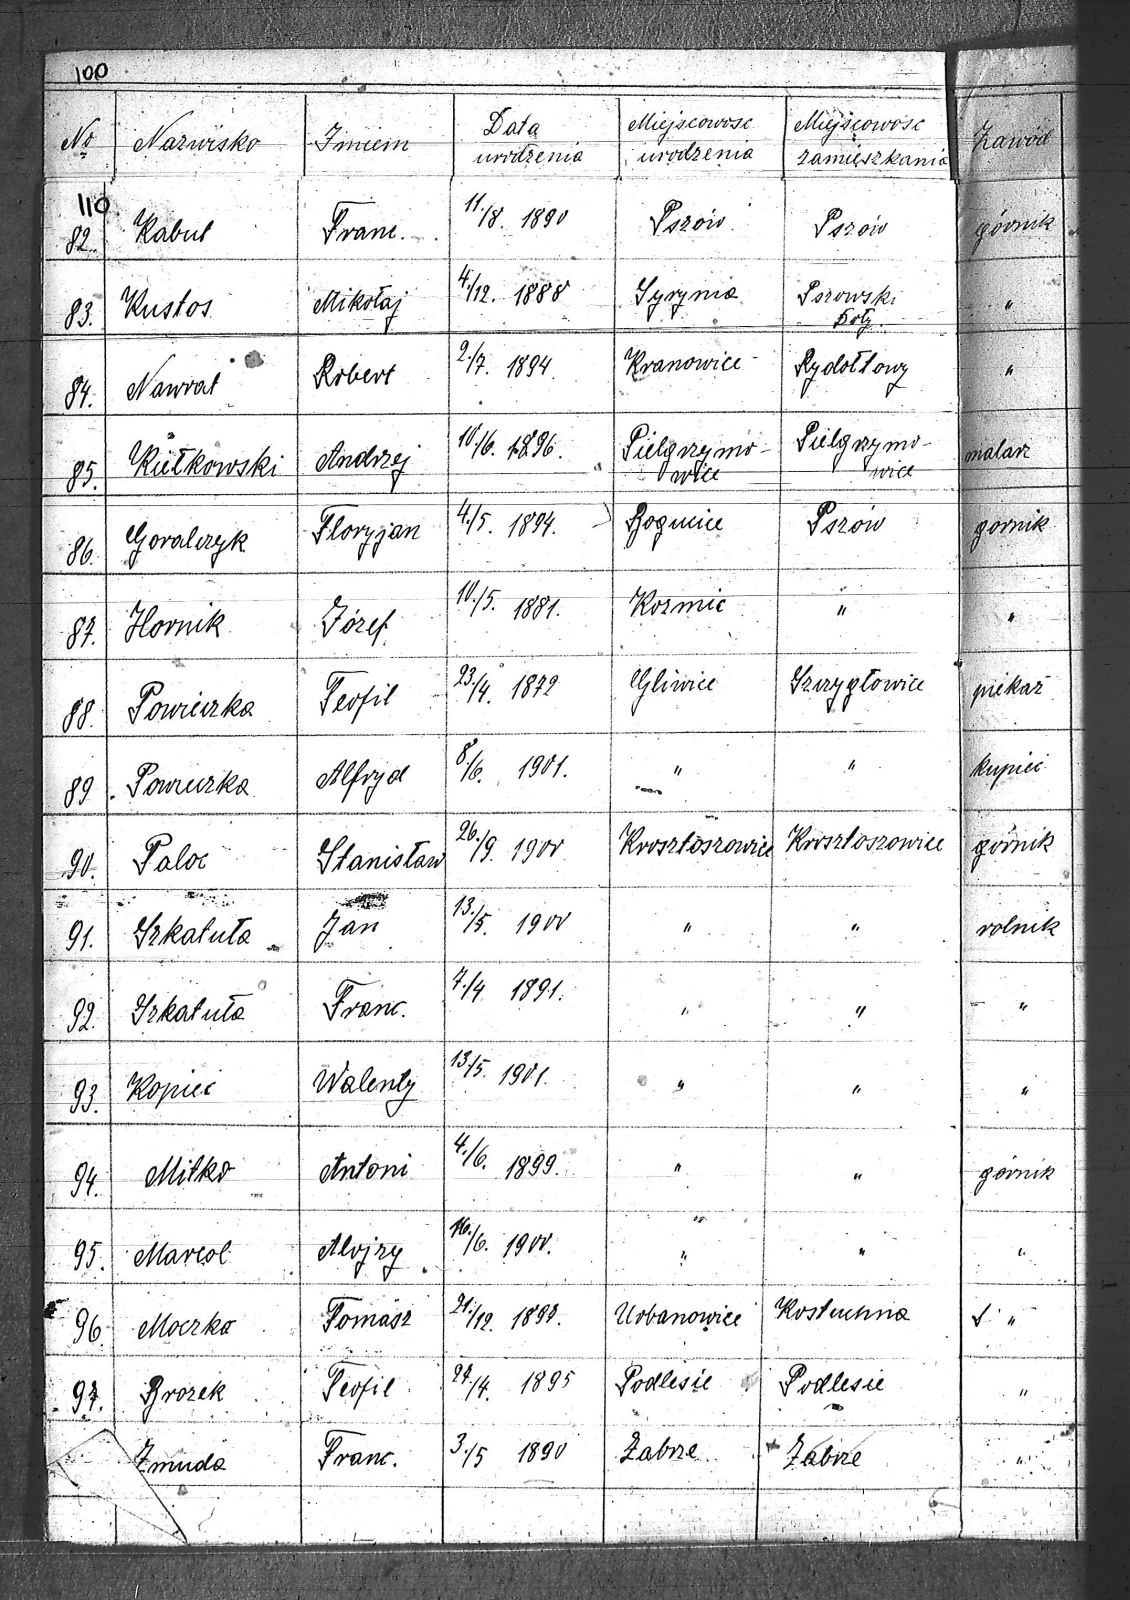 100
No Nazwisko Imiem Data urodzenia Miejscowość urodzenia Miejscowość zamieszkania Zawód
110
82. Kabut Franc. 11./8. 1890 Pszów Pszów górnik
83. Kustos Mikołaj 4./12. 1888 Syrynia Pszowski Doły "
84. Nawrat Robert 2./7. 1894 Kranowice Rydołtowy "
85. Kutkowski Andrzej 10./6. 1896. Pielgrzymowice Pielgrzymowice malarz
86. Goralczyk Floryjan 4./5. 1894. Bogucice Pszów gornik
87. Hornik Józef 10./5. 1881. Kozmic " "
88. Powieczka Teofil 23./4. 1872 Gliwice Szczygłowice piekarz
89. Powieczka Alfryd 8./6. 1901. " " kupiec
90. Paloc Stanisław 26./9. 1900 Krosztoszowice Krosztoszowice górnik
91. Szkatuła Jan 13./5. 1900 " " rolnik
92. Szkatuła Franc. 7./4 1891. " " "
93. Kopiec Walenty 13./5. 1901. " " "
94. Mitko Antoni 4./6. 1899. " " górnik
95. Marcol Alojzy 16./6. 1900. " " "
96. Moczko Tomasz 21./12. 1897. Urbanowice Kostuchna "
97. Brozek Teofil 27./4. 1895 Podlesie Podlesie "
Zmuda Franc. 3./5 1890 Zabrze Zabrze "